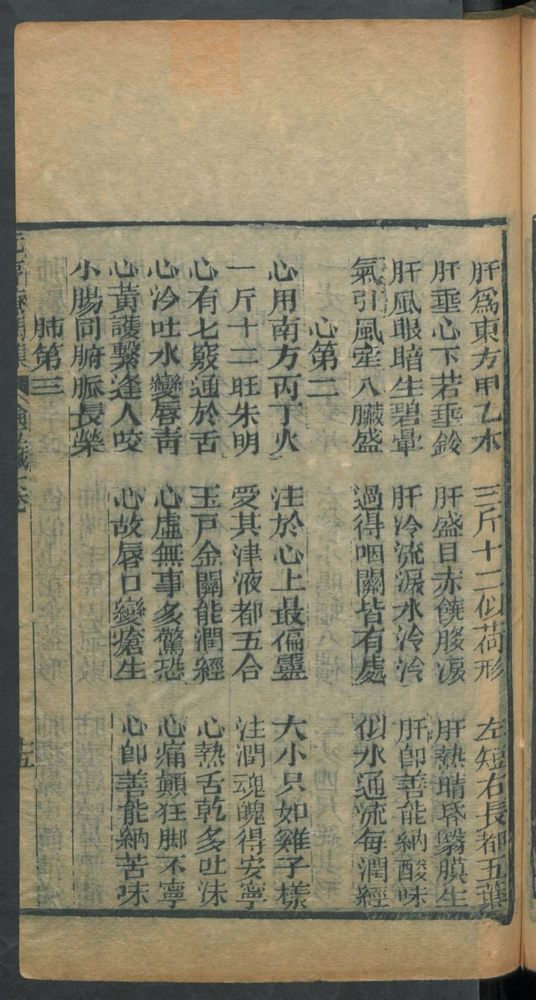 肝爲東方甲乙木 三斤十二似荷形 左短右長都五葉
肝垂心下若垂鈴 肝盛目赤饒胶淚 肝熱睛昏翳膜生
肝風眼暗生碧暈 肝冷流淚水泠泠 肝卽善能納酸味
氣引風牽八臟盛 過得咽關皆有處 似水通流每潤經
心第二
心用南方丙丁火 注於心上最偏靈 大小只如雞子樣
一斤十二旺朱明 愛其津液都五合 注潤魂魄得安寧
心有七竅通於舌 玉戸金關能潤經 心熱舌乾多吐沫
心冷吐水變唇青 心虛無事多驚恐 心痛顛狂脚不寧
心黃護繫逢人咬 心故唇口變瘡生 心卽善能納苦味
小腸同腑脈長榮
肺第三